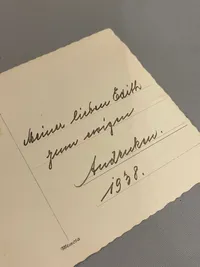 Meiner lieben Edith
zum ewigen
Andenken.
1938.
Mimosa